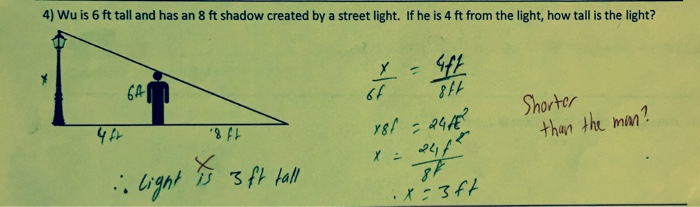 4) Wu is 6 ft tall and has an 8 ft shadow created by a street light. If he is 4 ft from the light, how tall is the light?
x
6ft
4 ft
8 ft
x/6f = 4ft/8ft
x8f = 24ft²
x = 24f²/8f
∴ x = 3ft
∴ Light is 3 ft tall
x
Shorter
than the man?